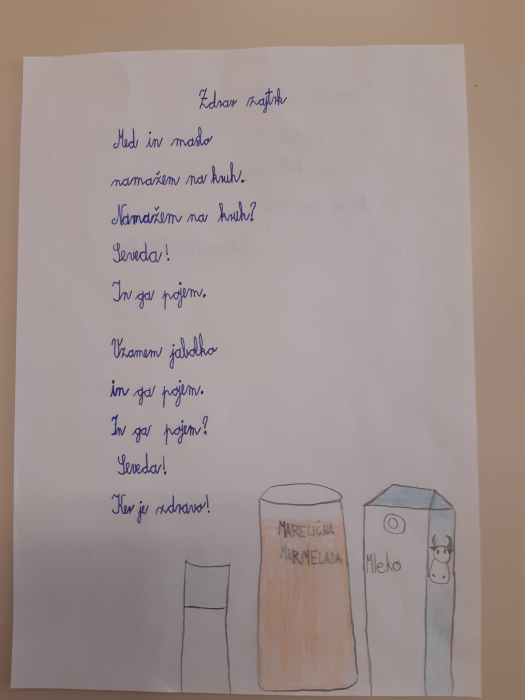 Zdrav zajtrk
Med in maslo
namažem na kruh.
Namažem na kruh?
Seveda!
In ga pojem.
Vzamem jabolko
in ga pojem.
In ga pojem?
Seveda!
Ker je zdravo!
MARELIČNA
MARMELADA
Mleko